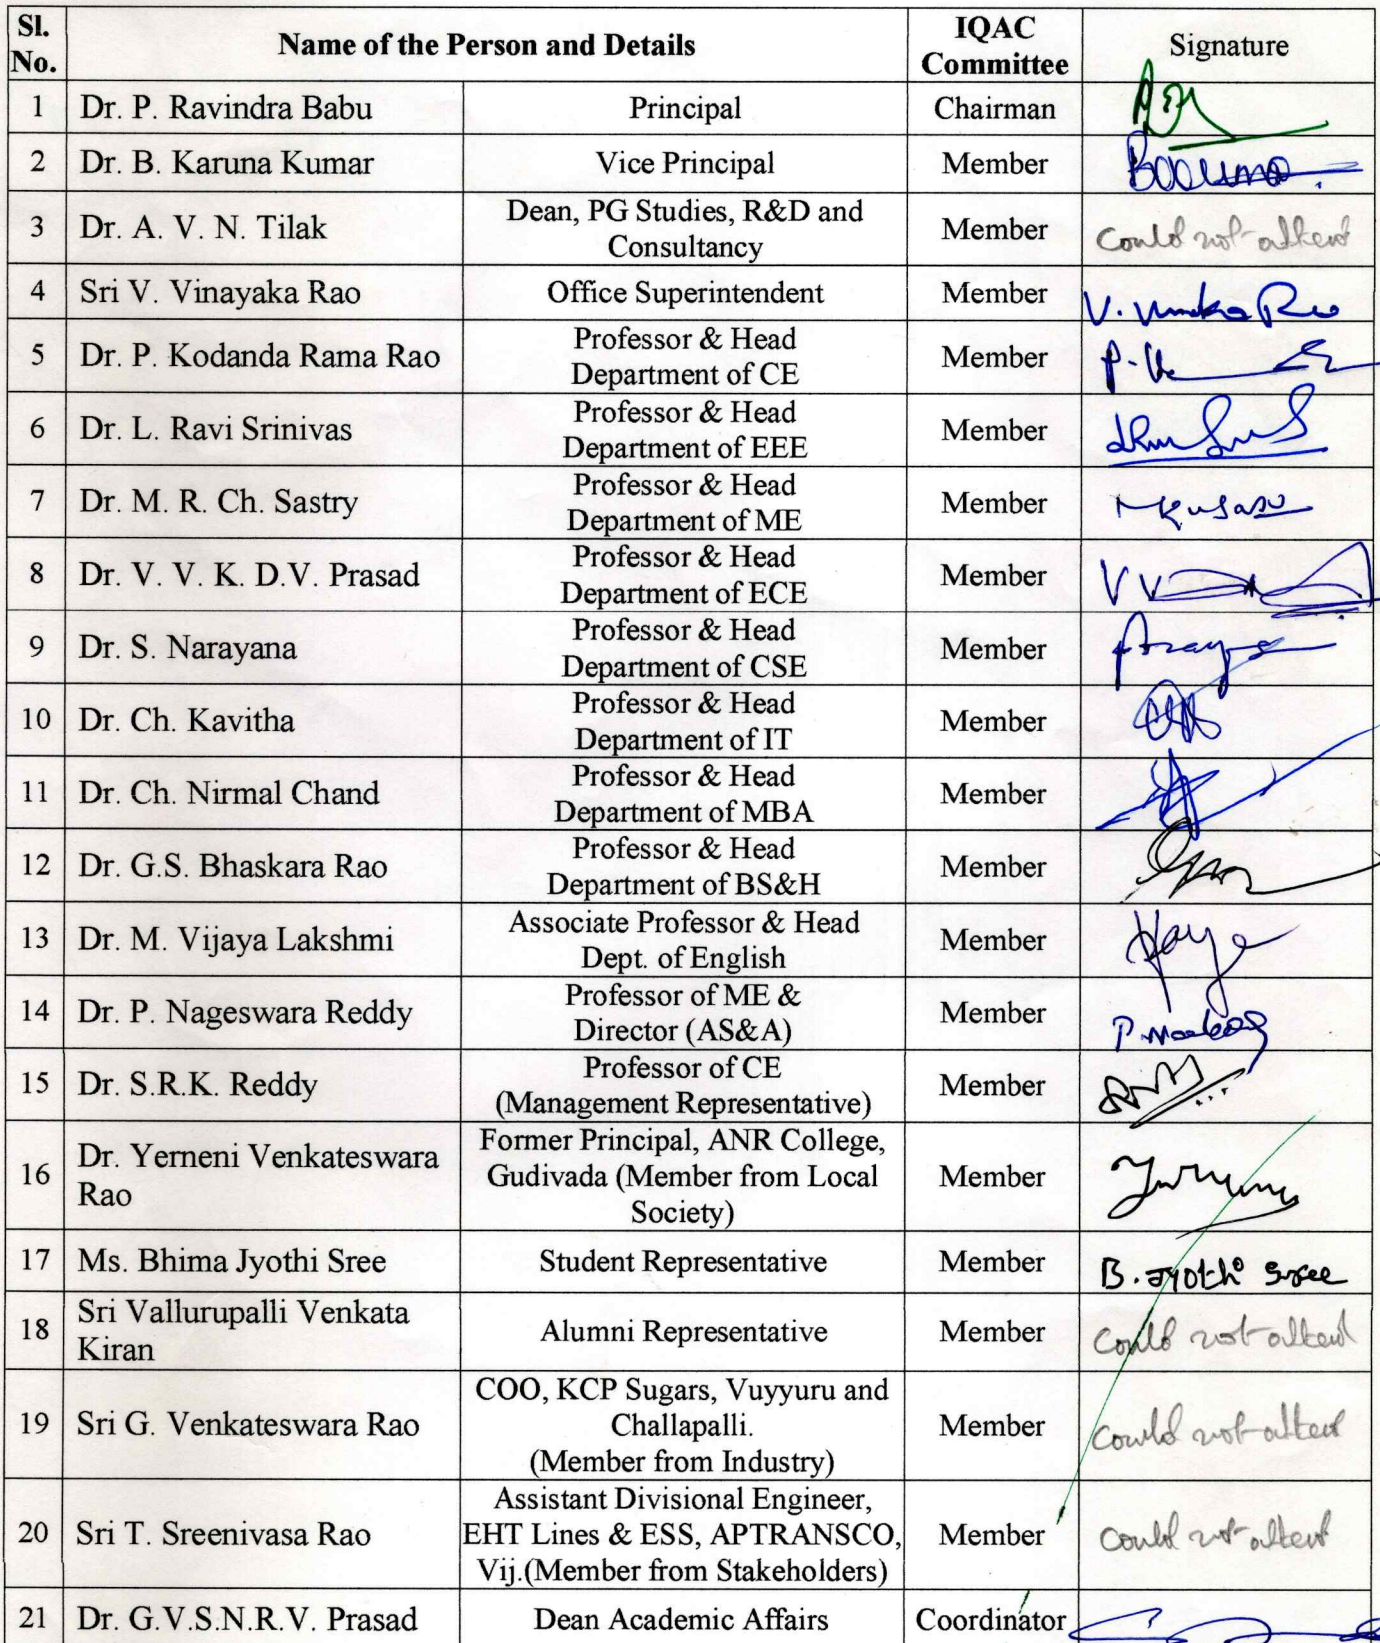 Sl. No. Name of the Person and Details IQAC Committee Signature
1 Dr. P. Ravindra Babu Principal Chairman
2 Dr. B. Karuna Kumar Vice Principal Member
3 Dr. A. V. N. Tilak Dean, PG Studies, R&D and Consultancy Member Could not attend
4 Sri V. Vinayaka Rao Office Superintendent Member
5 Dr. P. Kodanda Rama Rao Professor & Head Department of CE Member
6 Dr. L. Ravi Srinivas Professor & Head Department of EEE Member
7 Dr. M. R. Ch. Sastry Professor & Head Department of ME Member
8 Dr. V. V. K. D.V. Prasad Professor & Head Department of ECE Member
9 Dr. S. Narayana Professor & Head Department of CSE Member
10 Dr. Ch. Kavitha Professor & Head Department of IT Member
11 Dr. Ch. Nirmal Chand Professor & Head Department of MBA Member
12 Dr. G.S. Bhaskara Rao Professor & Head Department of BS&H Member
13 Dr. M. Vijaya Lakshmi Associate Professor & Head Dept. of English Member
14 Dr. P. Nageswara Reddy Professor of ME & Director (AS&A) Member
15 Dr. S.R.K. Reddy Professor of CE (Management Representative) Member
16 Dr. Yerneni Venkateswara Rao Former Principal, ANR College, Gudivada (Member from Local Society) Member
17 Ms. Bhima Jyothi Sree Student Representative Member B. Jyothi Sree
18 Sri Vallurupalli Venkata Kiran Alumni Representative Member Could not attend
19 Sri G. Venkateswara Rao COO, KCP Sugars, Vuyyuru and Challapalli. (Member from Industry) Member Could not attend
20 Sri T. Sreenivasa Rao Assistant Divisional Engineer, EHT Lines & ESS, APTRANSCO, Vij.(Member from Stakeholders) Member Could not attend
21 Dr. G.V.S.N.R.V. Prasad Dean Academic Affairs Coordinator